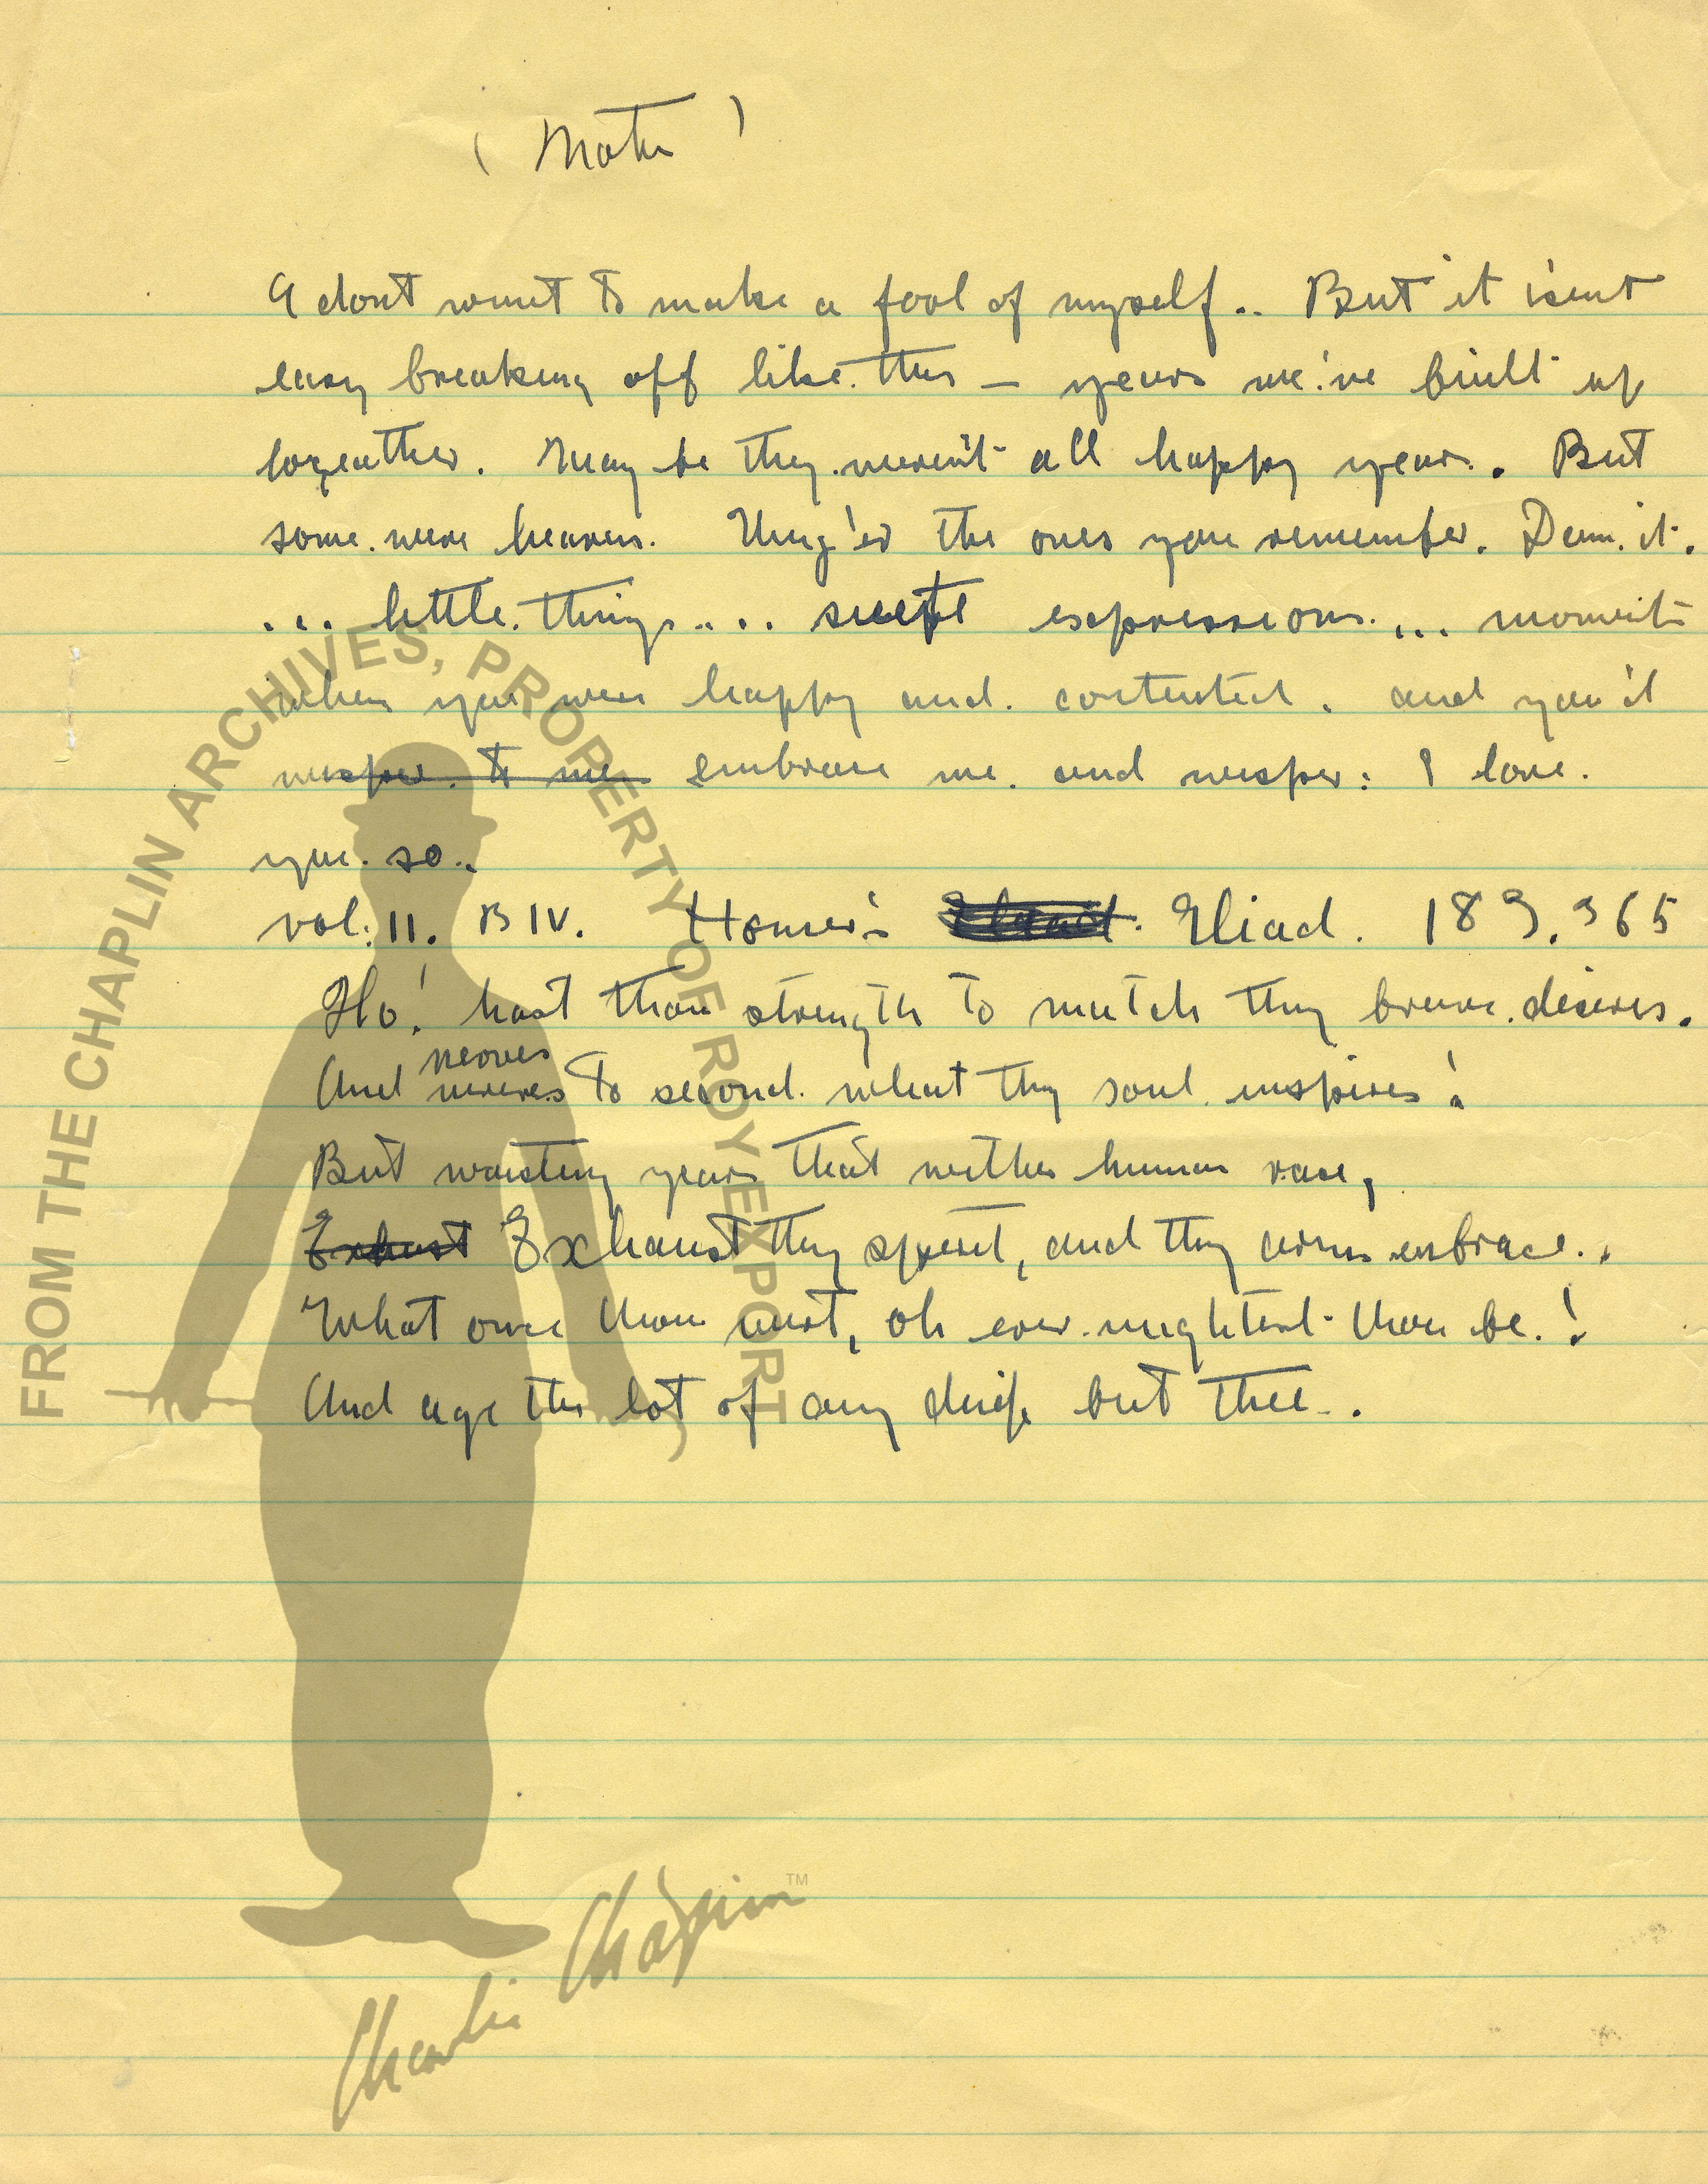 ( Note )
I dont want to make a fool of myself.. But it is'ent
easy breaking off like this — years we've built up
togeather. May be they weren't all happy years. But
some were heaven. They'er the ones you remember. Dam it.
... little things.... sweet expressions.... moments
when you were happy and contented. and you'd
wisper to me embrace me and wisper: I love
you so..
vol: II. B IV. Homer's Iliad. 189.365
Ho! hast thou strength to match thy brave desires.
nerves
And nerves to second what thy soul inspires!
But wasting years that wither human race,
Exhaust Exhaust thy spirit, and thy arms embrace..
What once thou wert, oh ever mightest thou be.!
And age the lot of any chief but thee..
FROM THE CHAPLIN ARCHIVES, PROPERTY OF ROY EXPORT
Charlie Chaplin TM